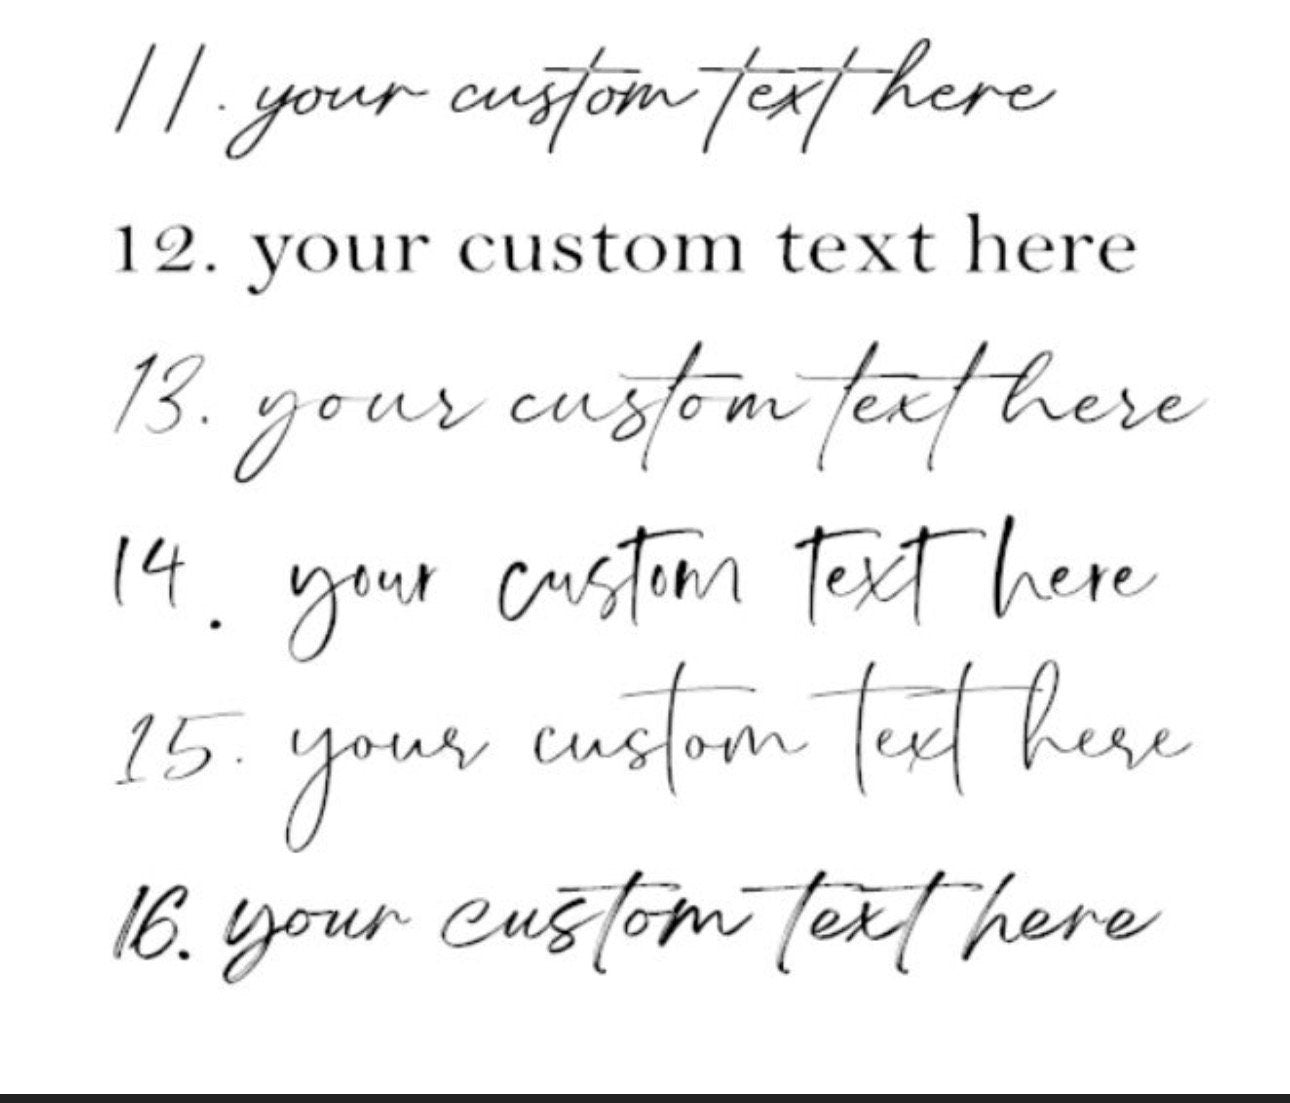 11. your custom text here
12. your custom text here
13. your custom text here
14. your custom text here
15. your custom text here
16. your custom text here